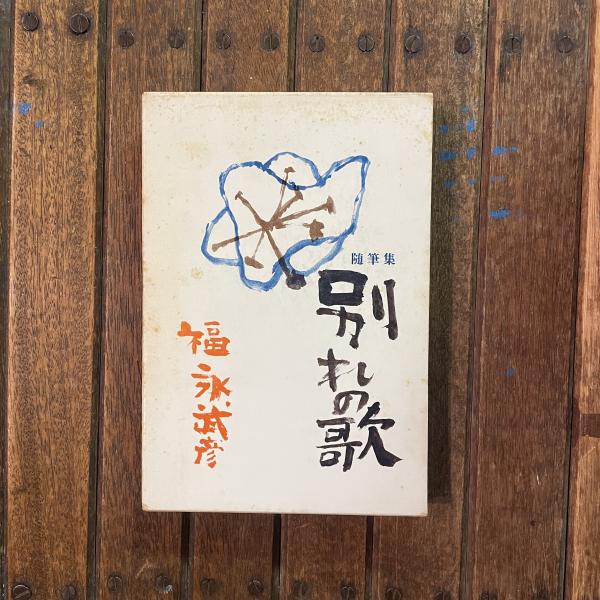 随筆集
別れの歌
福永武彦